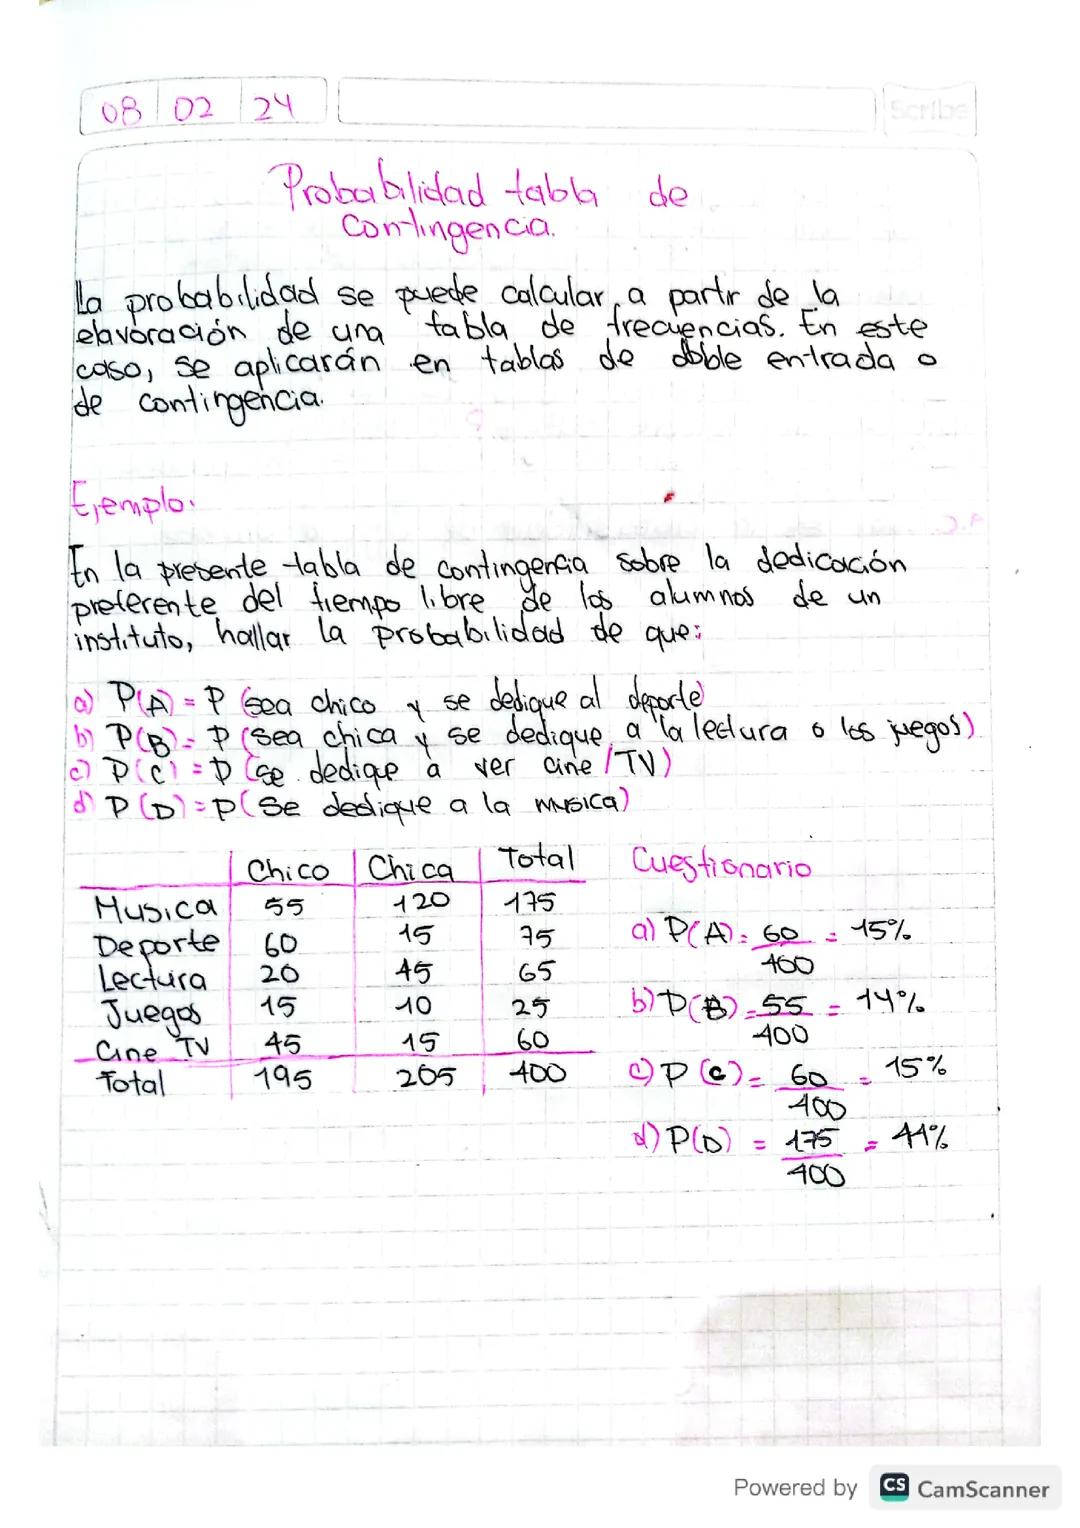 08 02 24
Scribe
Probabilidad tabla de
Contingencia.
La probabilidad se puede calcular, a partir de la
elavoración de una tabla de frecuencias. En este
caso, se aplicarán en tablas de doble entrada o
de contingencia.
Ejemplo.
En la presente tabla de contingencia sobre la dedicación
preferente del tiempo libre de los alumnos de un
instituto, hallar la probabilidad de que:
a) P(A) = P (sea chico y se dedique al deporte)
b) P(B) = P (sea chica y se dedique a la lectura o los juegos)
c) P(C) = P (se dedique a ver cine/TV)
d) P(D) = P (Se dedique a la musica)
Chico Chica Total
Musica 55 120 175
Deporte 60 15 75
Lectura 20 45 65
Juegos 15 10 25
Cine TV 45 15 60
Total 195 205 400
Cuestionario
a) P(A) = 60/400 = 15%
b) P(B) = 55/400 = 14%
c) P(C) = 60/400 = 15%
d) P(D) = 175/400 = 44%
Powered by CS CamScanner